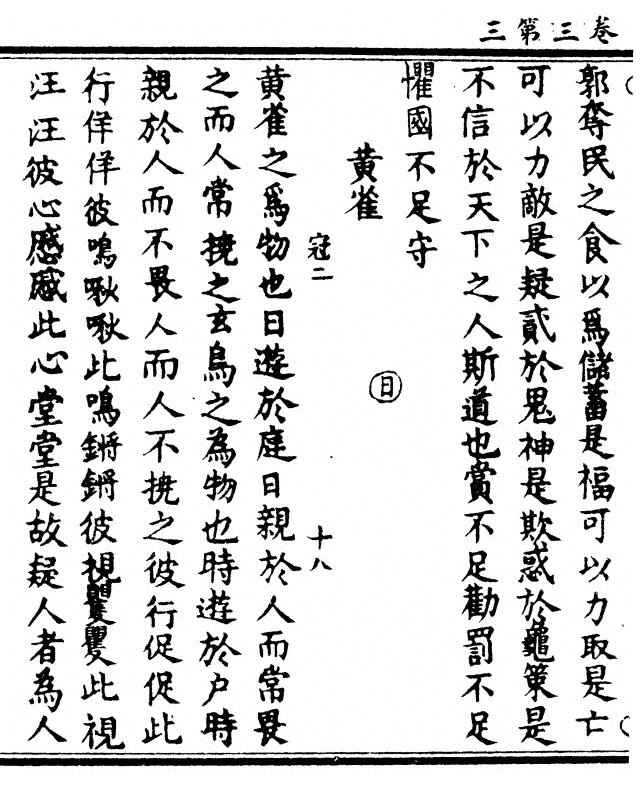 卷三第三
郭奪民之食以爲儲蓄是福可以力取是亡
可以力敵是疑貳於鬼神是欺惑於龜策是
不信於天下之人斯道也賞不足勸罰不足
懼國不足守
黄雀
冠二
十八
日
黄雀之爲物也日遊於庭日親於人而常畏
之而人常撓之玄鳥之為物也時遊於户時
親於人而不畏人而人不撓之彼行促促此
行佯佯彼鳴啾啾此鳴鏘鏘彼視矍矍此視
汪汪彼心慼慼此心堂堂是故疑人者為人